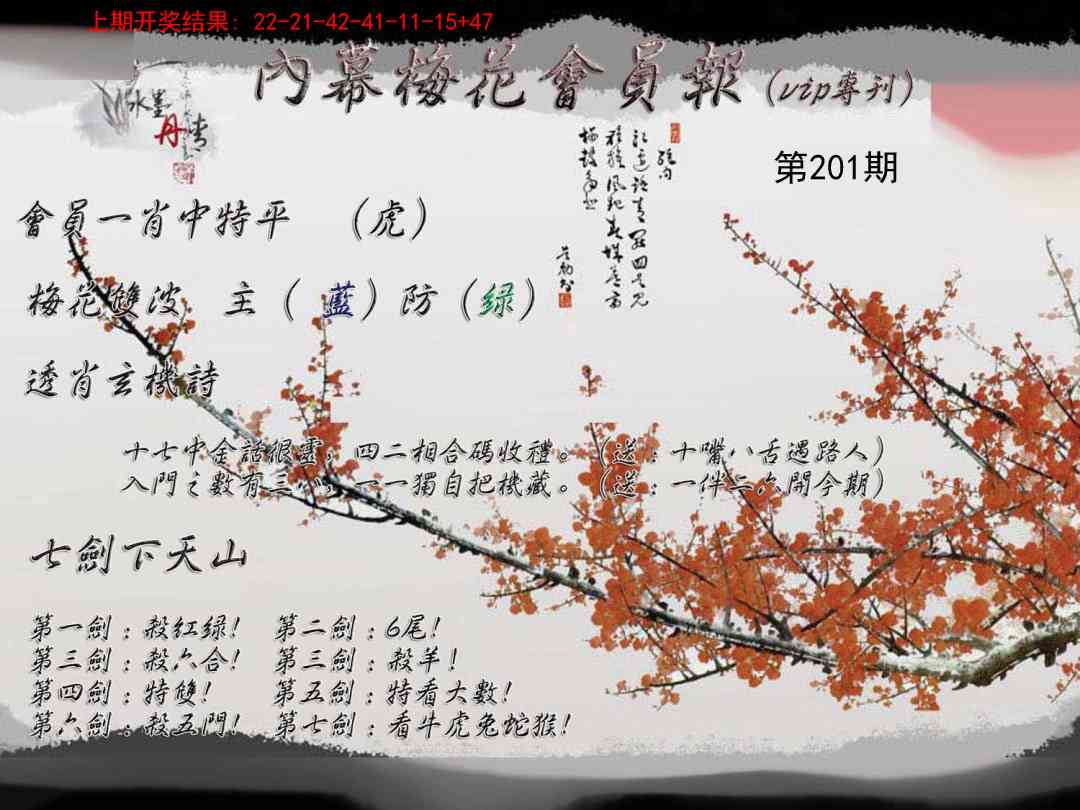 上期开奖结果: 22-21-42-41-11-15+47
內幕梅花會員報(vip專刊)
水墨
丹青
第201期
會員一肖中特平 (虎)
梅花雙波 主(藍)防(緑)
透肖玄機詩
十七中金話很靈,四二相合碼收禮。(送:十嘴八舌遇路人)
入門之數有三小,一一獨自把機藏。(送:一伴二六開今期)
七劍下天山
第一劍:殺紅緑! 第二劍:6尾!
第三劍:殺六合! 第三劍:殺羊!
第四劍:特雙! 第五劍:特看大數!
第六劍:殺五門! 第七劍:看牛虎兔蛇猴!